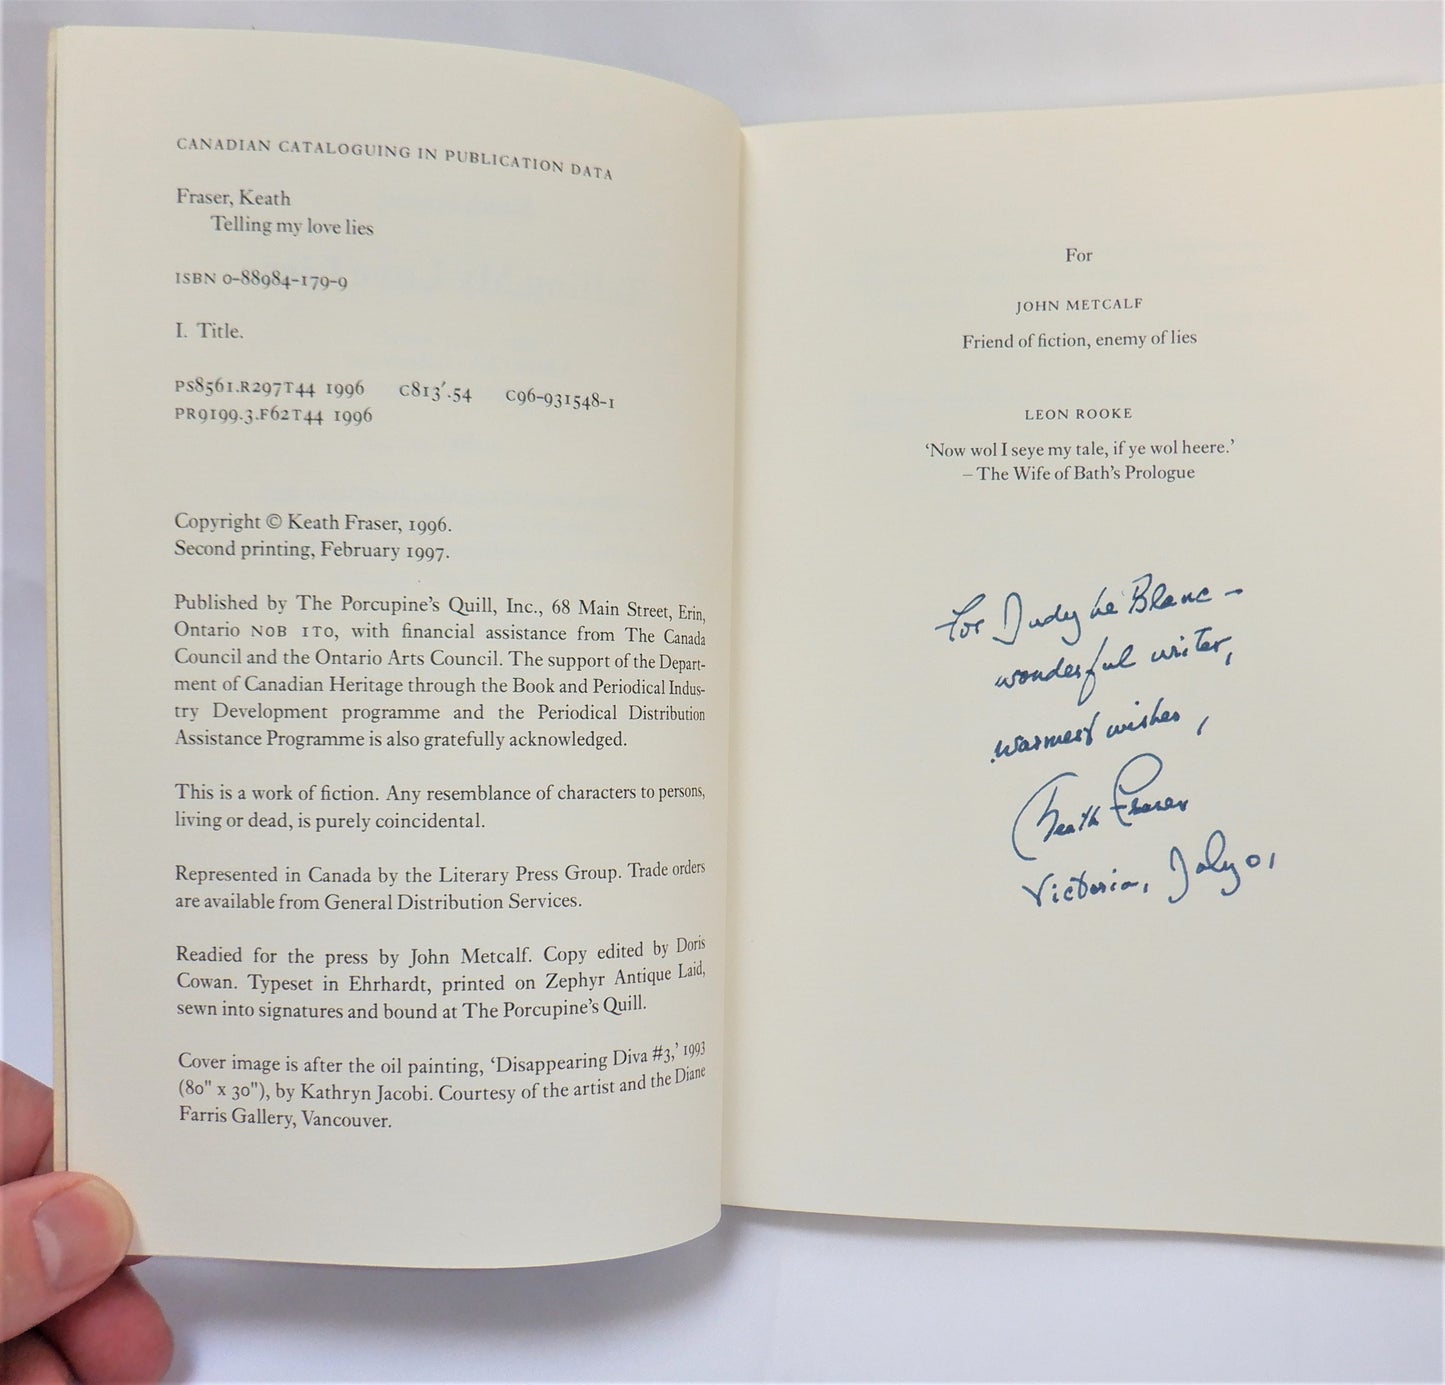 CANADIAN CATALOGUING IN PUBLICATION DATA
Fraser, Keath
Telling my love lies
ISBN 0-88984-179-9
I. Title.
PS8561.R297T44 1996 C813'.54 C96-931548-1
PR9199.3.F62T44 1996
Copyright © Keath Fraser, 1996.
Second printing, February 1997.
Published by The Porcupine's Quill, Inc., 68 Main Street, Erin,
Ontario N0B 1T0, with financial assistance from The Canada
Council and the Ontario Arts Council. The support of the Depart-
ment of Canadian Heritage through the Book and Periodical Indus-
try Development programme and the Periodical Distribution
Assistance Programme is also gratefully acknowledged.
This is a work of fiction. Any resemblance of characters to persons,
living or dead, is purely coincidental.
Represented in Canada by the Literary Press Group. Trade orders
are available from General Distribution Services.
Readied for the press by John Metcalf. Copy edited by Doris
Cowan. Typeset in Ehrhardt, printed on Zephyr Antique Laid,
sewn into signatures and bound at The Porcupine's Quill.
Cover image is after the oil painting, ‘Disappearing Diva #3,’ 1993
(80" x 30"), by Kathryn Jacobi. Courtesy of the artist and the Diane
Farris Gallery, Vancouver.
For
JOHN METCALF
Friend of fiction, enemy of lies
LEON ROOKE
‘Now wol I seye my tale, if ye wol heere.’
– The Wife of Bath's Prologue
For Judy Le Blanc –
wonderful writer,
warmest wishes,
Keath Fraser
Victoria, July 01